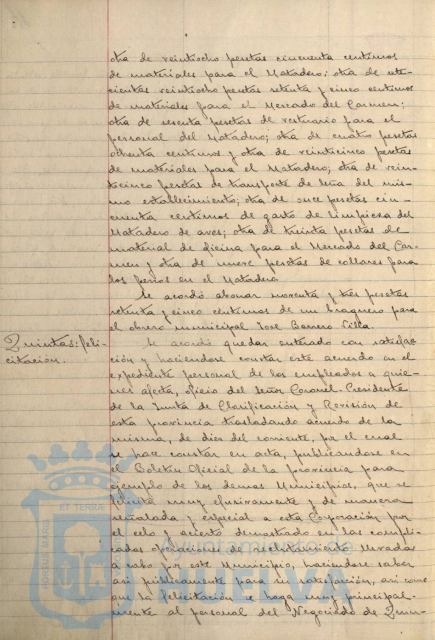 otra de veintiocho pesetas cincuenta centimos
de materiales para el Matadero; otra de sete-
cientas veintiocho pesetas setenta y cinco centimos
de materiales para el Mercado del Carmen;
otra de sesenta pesetas de vestuario para el
personal del Matadero; otra de cuatro pesetas
ochenta centimos y otra de veinticinco pesetas
de materiales para el Matadero; otra de vein-
ticinco pesetas de transporte de leña del mis-
mo establecimiento; otra de once pesetas cin-
cuenta centimos de gasto de limpieza del
Matadero de aves; otra de treinta pesetas de
material de oficina para el Mercado del Car-
men y otra de nueve pesetas de collares para
los perros en el Matadero.
Se acordó abonar noventa y tres pesetas
setenta y cinco centimos de un braguero para
el obrero municipal José Borrero
Quintas: feli-
citación.
Se acordó quedar enterado con satisfac-
ción y haciendose constar este acuerdo en el
expediente personal de los empleados a quie-
nes afecta, oficio del Señor Coronel-Presidente
de la Junta de Clasificación y Revisión de
esta provincia trasladando acuerdo de la
misma, de diez del corriente, por el cual
se hace constar en acta, publicandose en
el Boletín Oficial de la provincia para
ejemplo de los demas Municipios, que se
felicita muy efusivamente y de manera
señalada y especial a esta Corporación por
el celo y acierto demostrado en las compli-
cadas operaciones de reclutamiento llevadas
a cabo por este Municipio, haciendose saber
asi publicamente para su satisfacción, asi como
que la felicitación se haga muy principal-
mente al personal del Negociado de Quin-